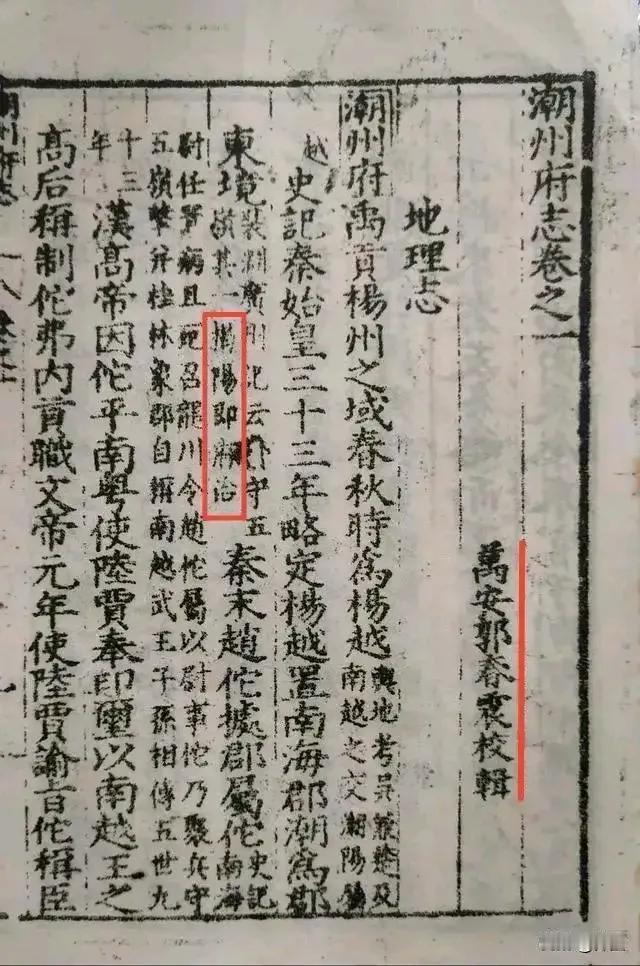 潮州府志卷之一
萬安郭春震校輯
地理志
潮州府禹貢楊州之域春秋時爲楊越輿地考吳越楚及
南越之交潮陽屬
越
史記秦始皇三十三年略定楊越置南海郡潮爲郡
東境裴淵廣州記云戍守五
嶺其一揭陽即府治秦末趙佗據郡屬佗史記
南海
尉任囂病且死召龍川令趙佗屬以尉事佗乃聚兵守
五嶺擊并桂林象郡自稱南越武王子孫相傳五世九
十三
年
漢高帝因佗平南粤使陸賈奉印璽以南越王之
高后稱制佗弗内貢職文帝元年使陸賈諭旨佗稱臣
潮州府志